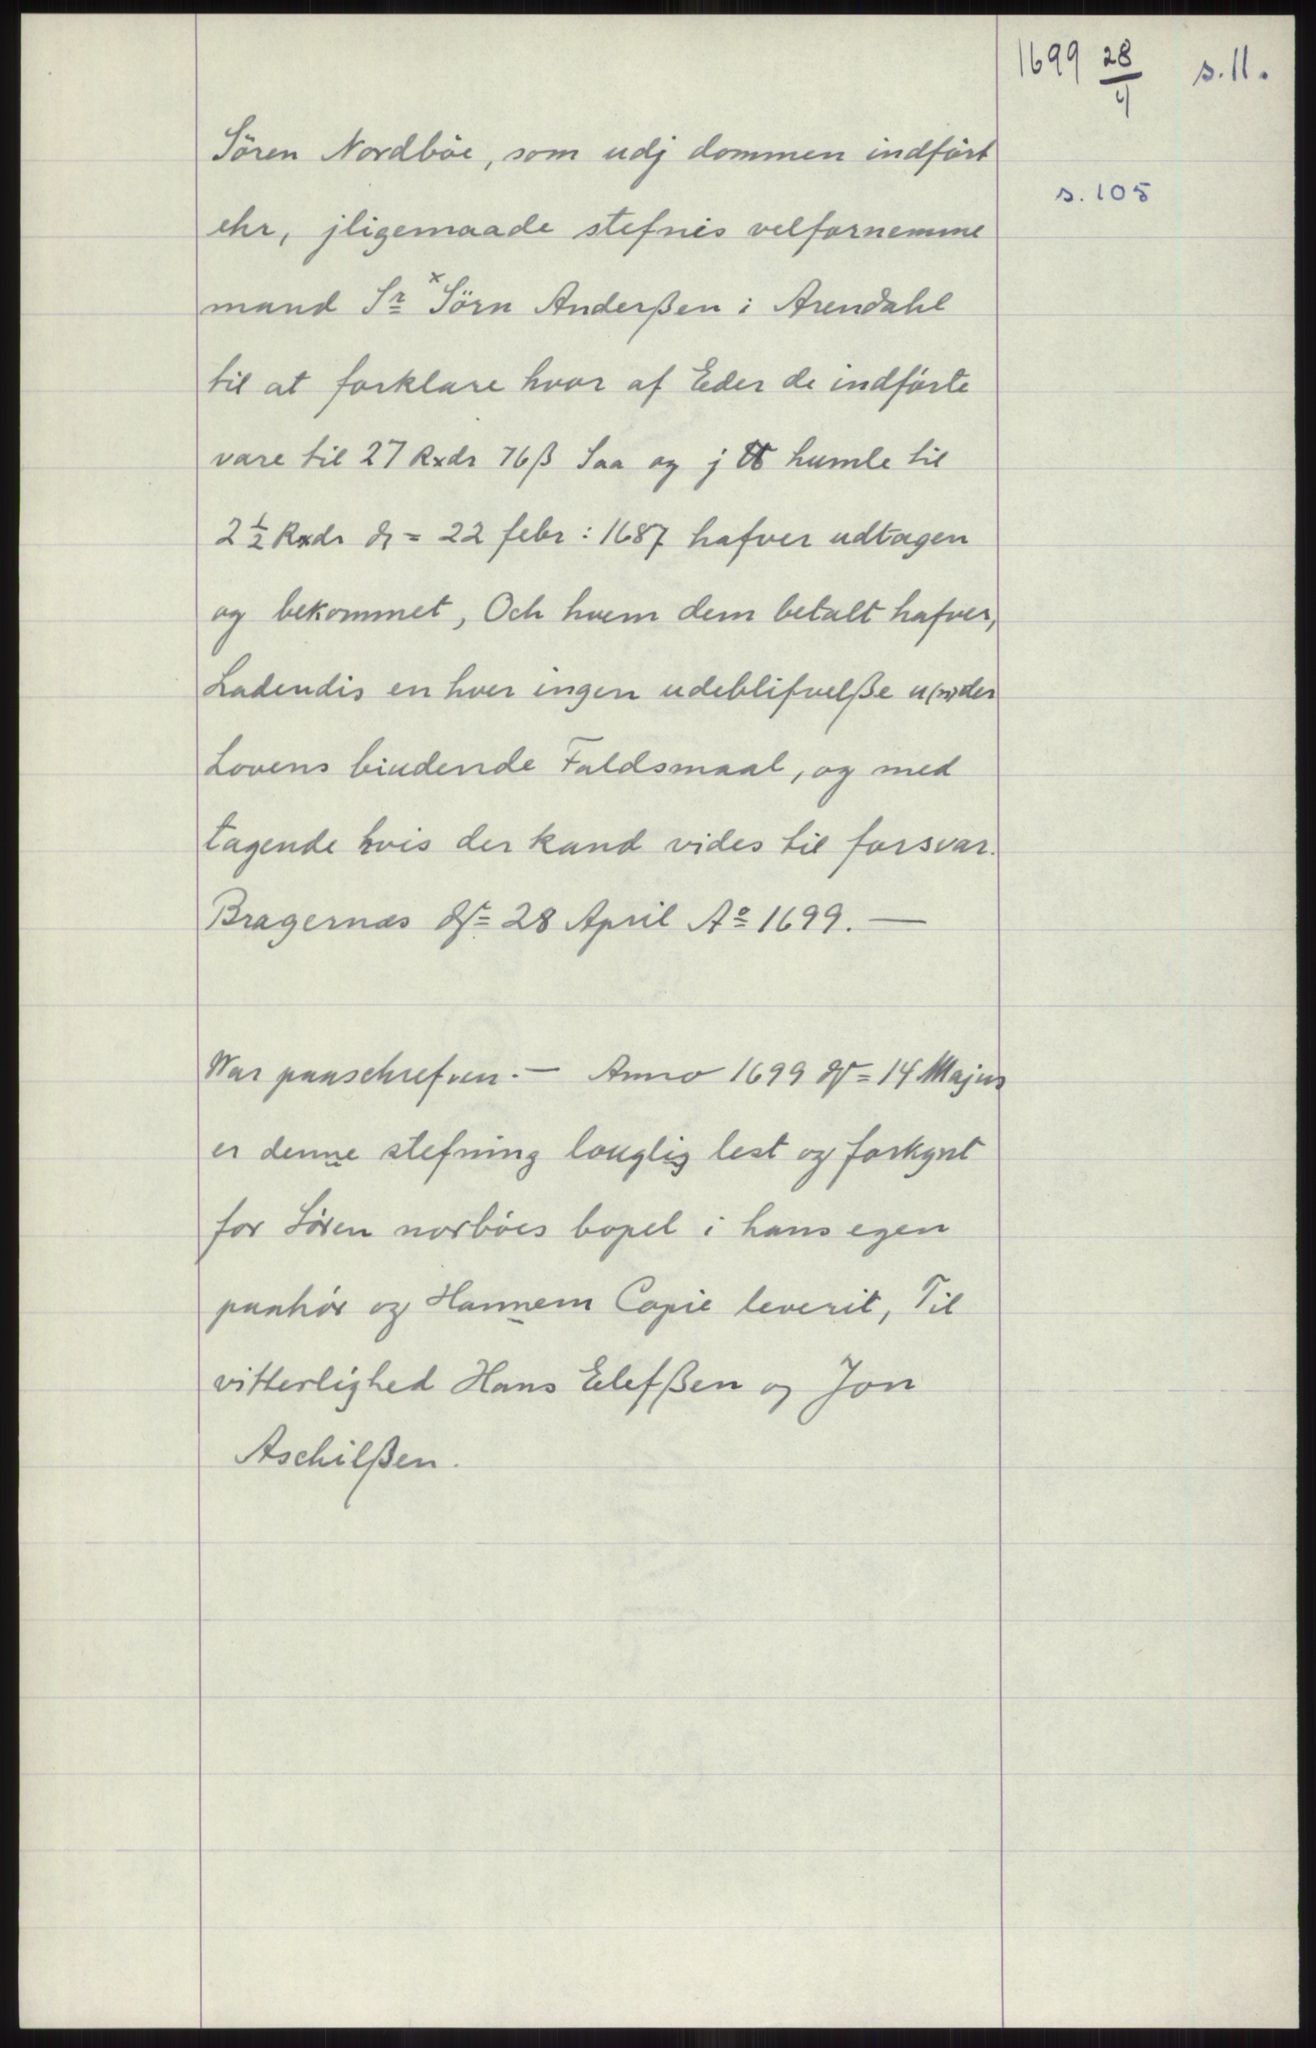 1699 28/4 s. 11.
s. 105
Sören Nordböe, som udj dommen indfört
ehr, jligemaade stefnis velfornemme
mand Sr x Sörn Anderßen i Arendahl
til at forklare hvor af Eder de indförte
vare til 27 Rxdr 76 ß Saa og j ℔ humle til
2 1/2 Rxdr d = 22 febr: 1687 hafver udtagen
og bekommet, Och hvem dem betalt hafver,
Ladendis en hver ingen udeblifvelße u(n)der
Lovens biudende Faldsmaal, og med
tagende hvis der kand vides til forsvar.
Bragernæs d = 28 April Ao 1699. —
War paaschrefven. — Anno 1699 d = 14 Majus
er denne stefning louglig lest og forkynt
for Sören norböes bopel i hans egen
paahör og Hannem Copie leverit, Til
vitterlighed Hans Elefßen og Jon
Aschilßen.